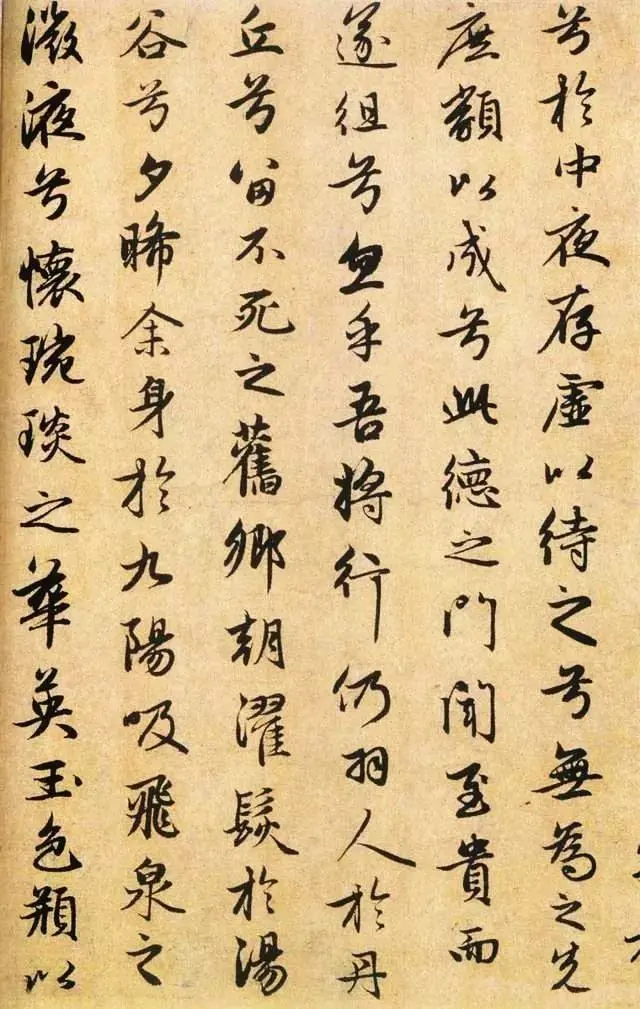 兮於中夜存虛以待之兮無為之先
庶類以成兮此德之門聞至貴而
遂徂兮忽乎吾將行仍羽人於丹
丘兮留不死之舊鄉朝濯髮於湯
谷兮夕晞余身於九陽吸飛泉之
溦液兮懷琬琰之華英玉色頩以